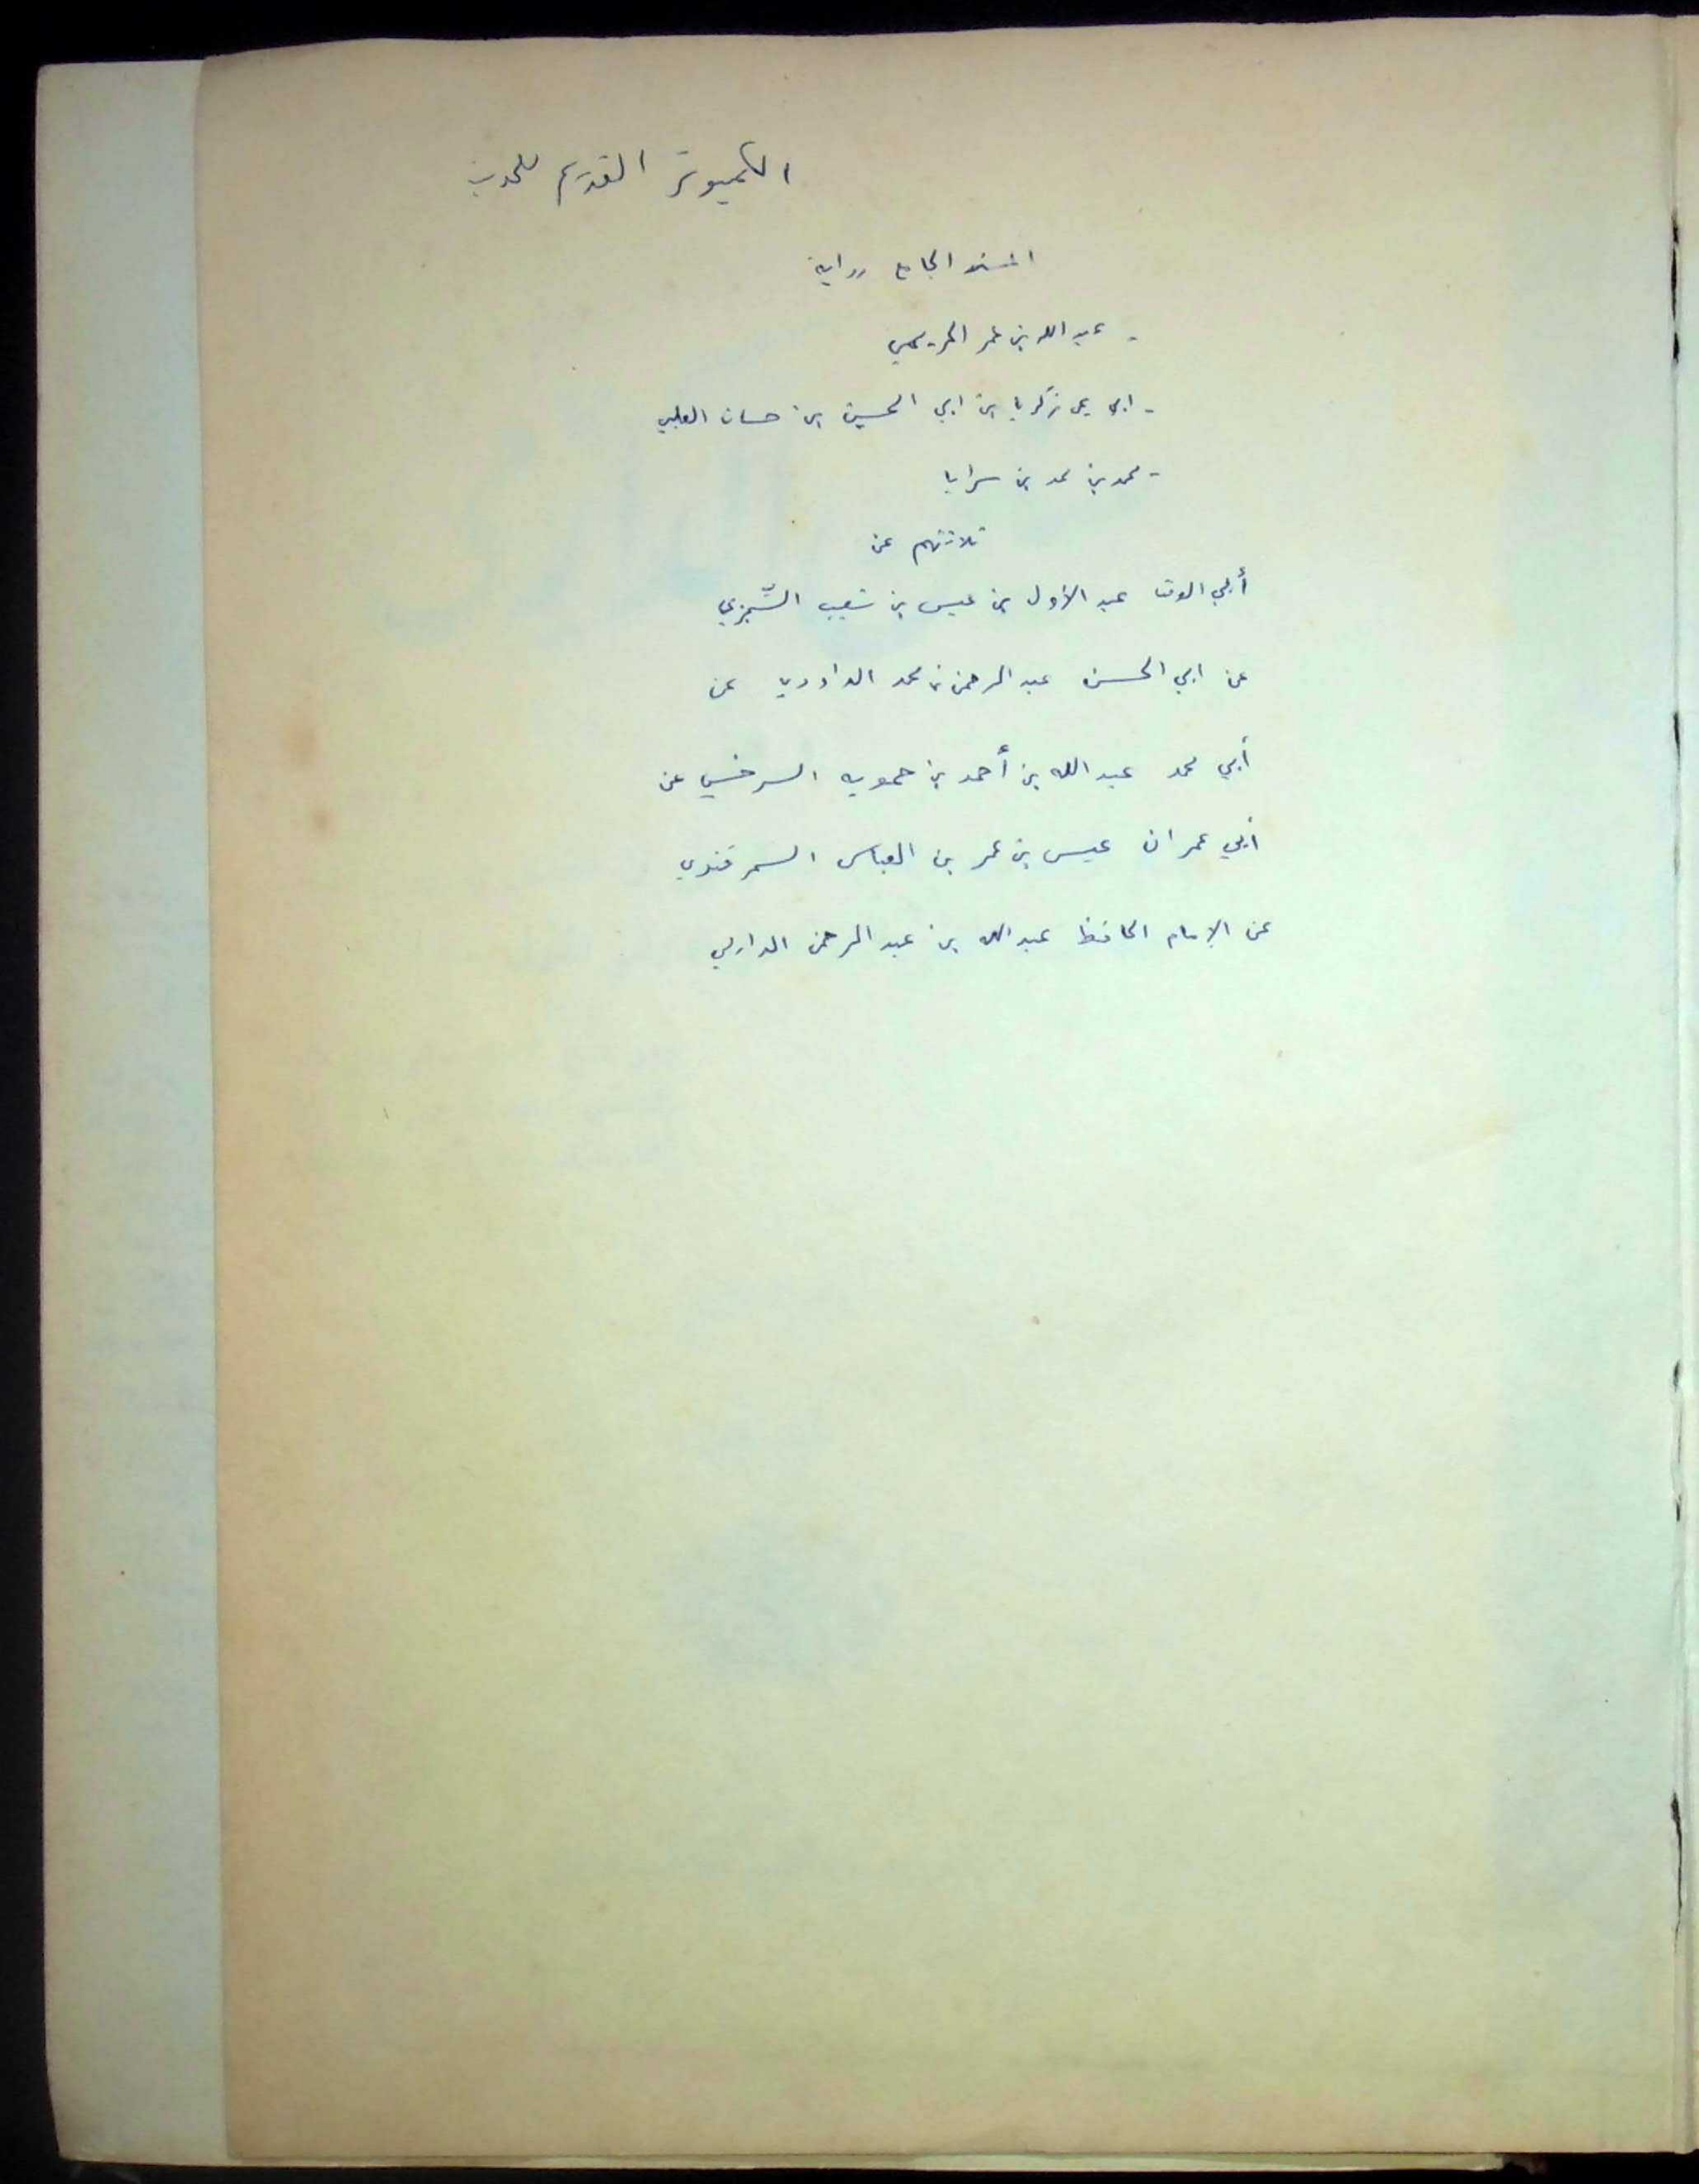 الكمبيوتر القديم للحديث
المسند الجامع رواية
- عبد الله بن عمر الحريمي
- ابي يحي زكريا بن ابي الحسن بن حسان العلبي
- محمد بن محمد بن سرايا
ثلاثتهم عن
أبي الوقت عبد الأول بن عيسى بن شعيب السِّجزي
عن ابي الحسن عبد الرحمن بن محمد الداودي عن
أبي محمد عبد الله بن أحمد بن حمويه السرخسي عن
أبي عمران عيسى بن عمر بن العباس السمرقندي
عن الإمام الحافظ عبد الله بن عبد الرحمن الدارمي